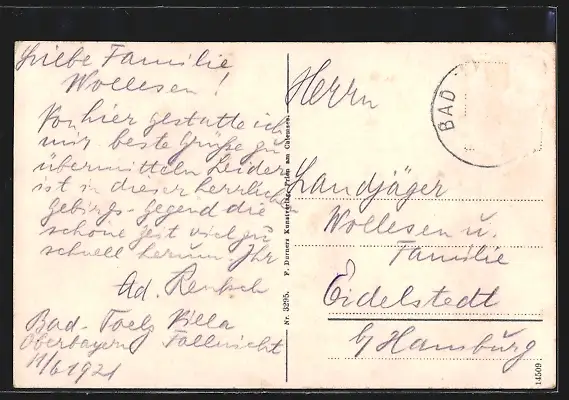 Liebe Familie
Wollesen!
Von hier gestatte ich
mir beste Grüße zu
übermitteln Leider
ist in dieser herrlichen
gebirgs-gegend die
schöne zeit viel zu
schnell herum. Ihr
Ad. Rentsch
Bad-Toelz Villa
Oberbayern
11/6 1921
Nr. 3295. F. Durners Kunstverlag, Prien am Chiemsee.
BAD
Herrn
Landjäger
Wollesen u.
Familie
Eidelstedt
b/ Hamburg
14509